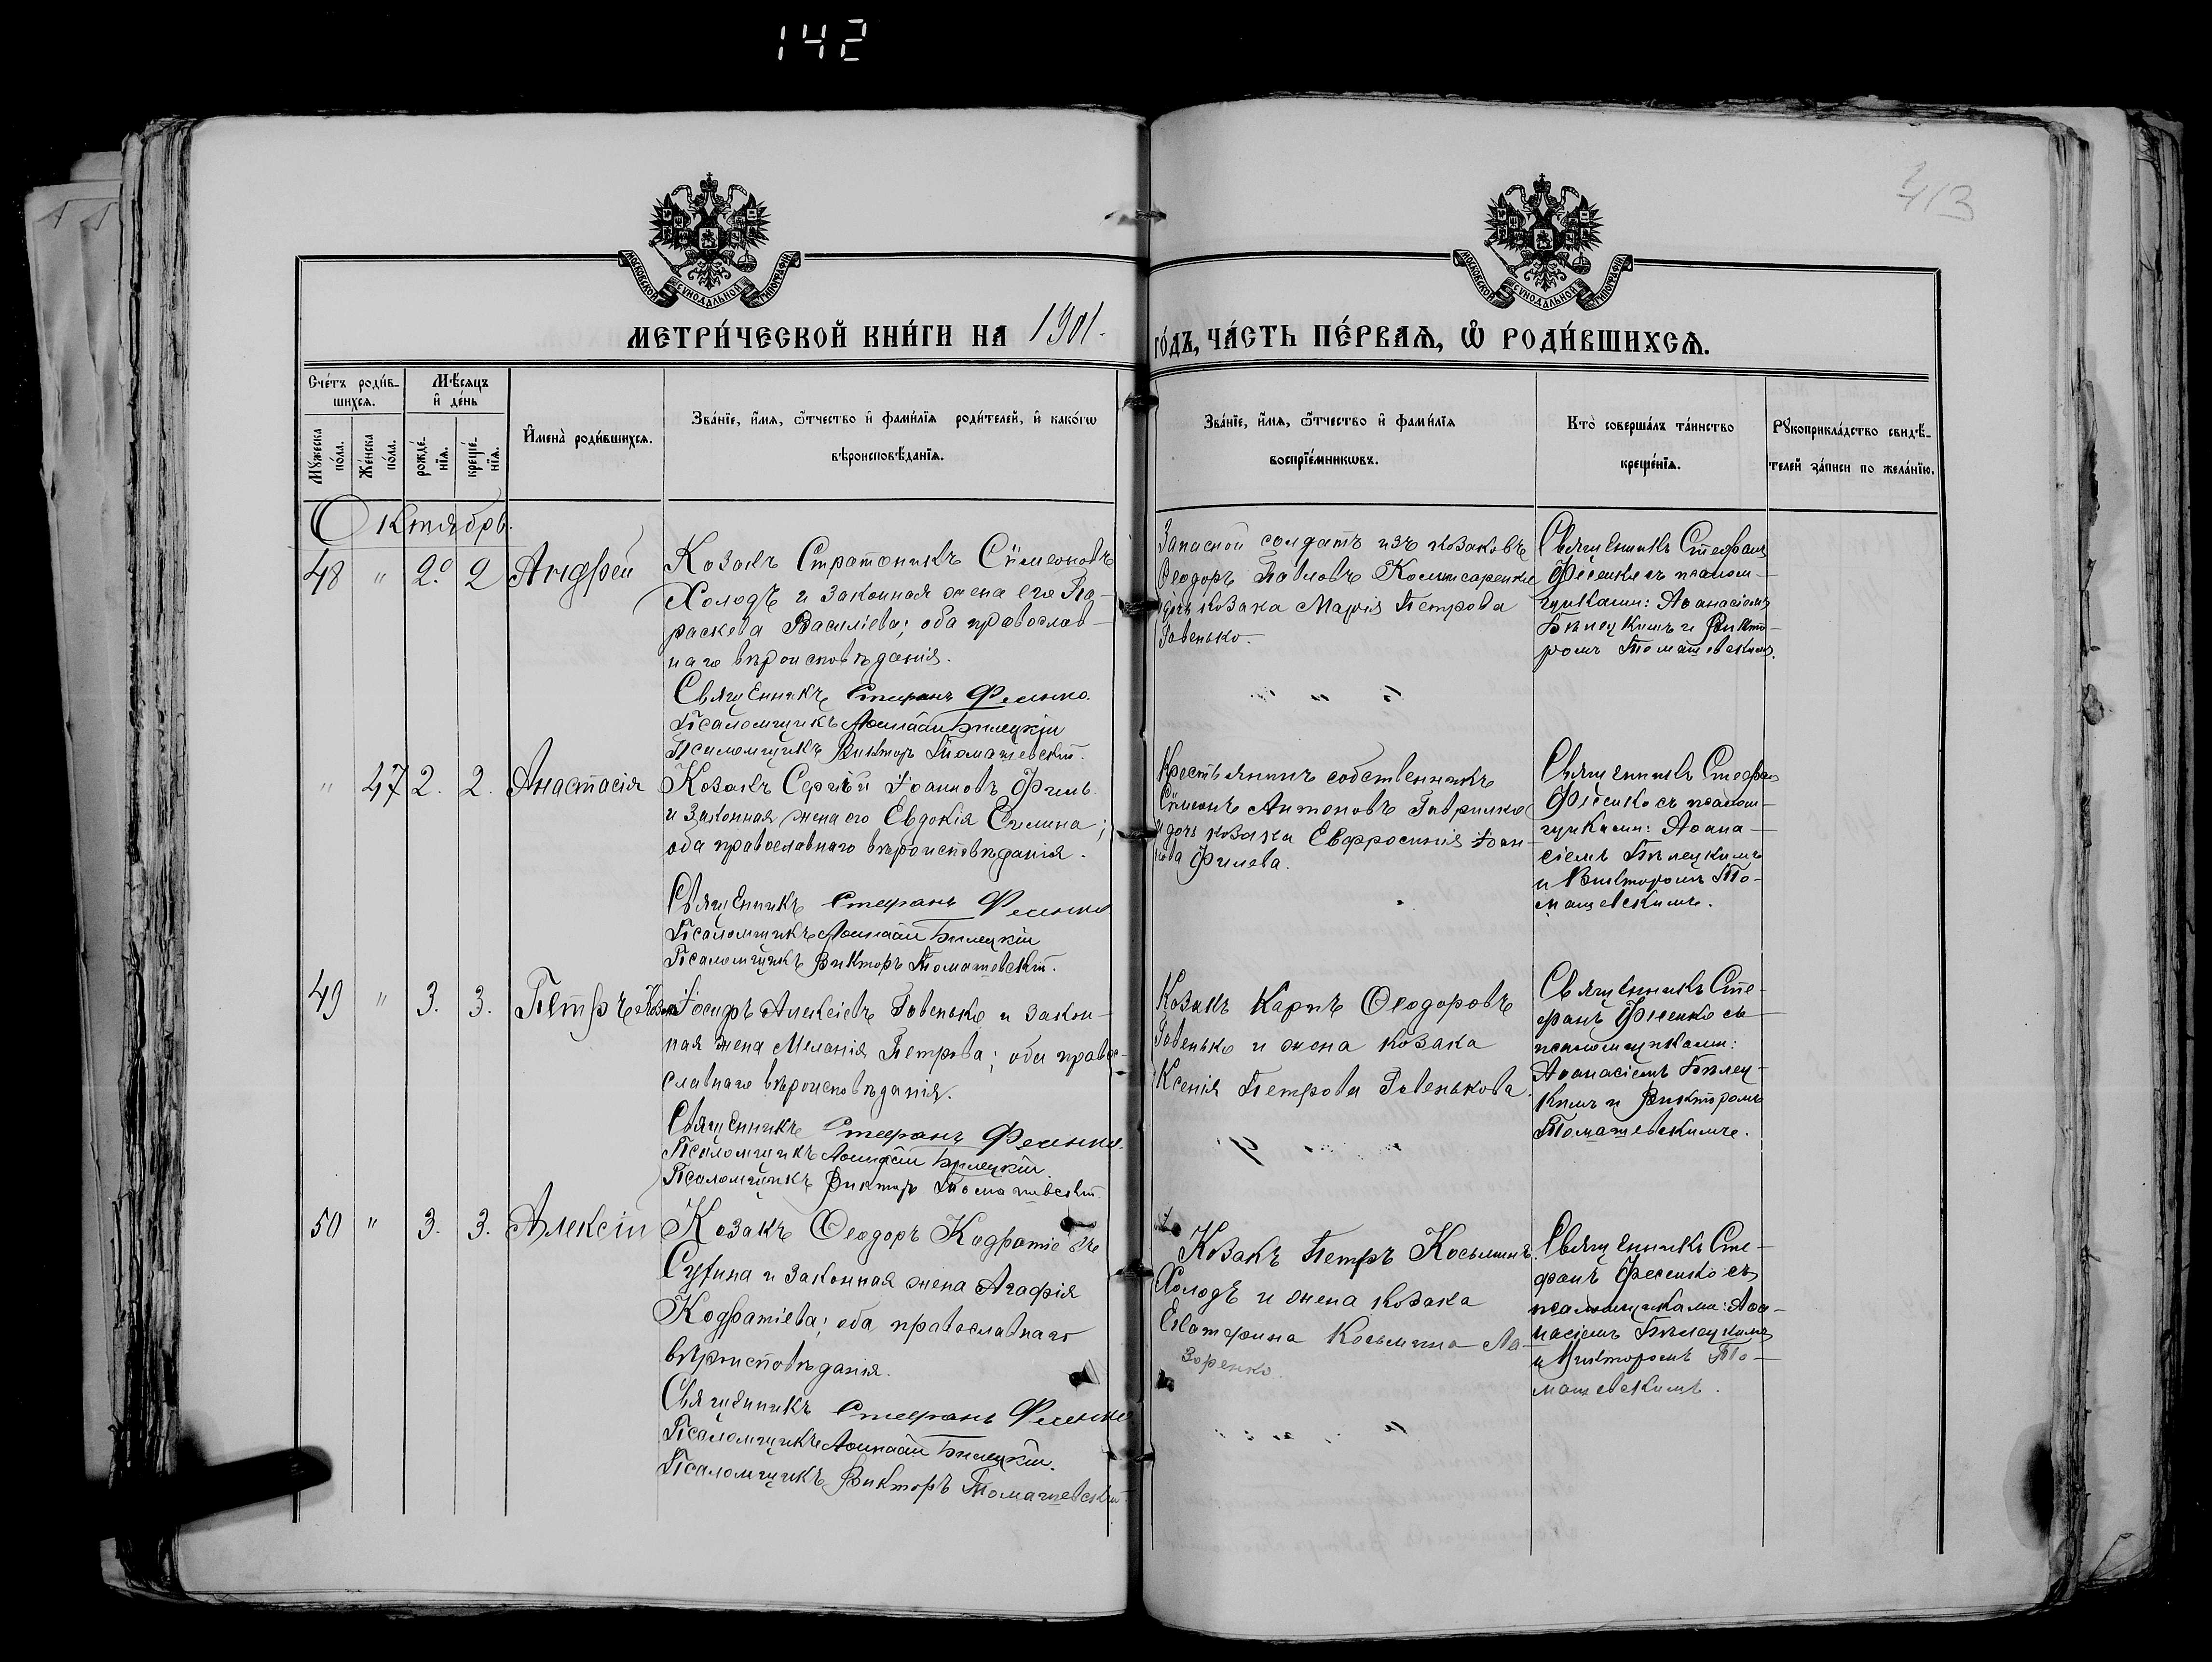 142
413
МОСКОВСКОЙ СѴНОДАЛЬНОЙ ТИПОГРАФІИ
МОСКОВСКОЙ СѴНОДАЛЬНОЙ ТИПОГРАФІИ
МЕТРИ́ЧЕСКОЙ КНИ́ГИ НА 1901.
ГО́ДЪ, ЧА́СТЬ ПЕ́РВАѦ, Ѽ РОДИ́ВШИХСѦ.
Сче́тъ роди́в-
шихсѧ.
Мѣ́сѧцъ
и҆ де́нь
Мꙋ́жеска
по́ла.
Же́нска
по́ла.
рожде́-
нїѧ.
креще́-
нїѧ.
И҆мена̀ роди́вшихсѧ.
Зва́нїе, и҆́мѧ, ѻ҆́тчество и҆ фами́лїѧ роди́телей, и҆ како́гѡ
вѣроисповѣ́данїѧ.
Зва́нїе, и҆́мѧ, ѻ҆́тчество и҆ фами́лїѧ
воспрїе́мникѡвъ.
Кто̀ соверша́лъ та́инство
креще́нїѧ.
Рꙋкоприкла́дство свидѣ́-
телей за́писи по жела́нїю.
Октябрь.
48 " 2. 2 Андрей
Козакъ Стратоникъ Сѵмеоновъ
Холодъ и законная жена его Па-
раскева Василіева; оба православ-
наго вѣроисповѣданія.
Священникъ Стефанъ Фесенко.
Псаломщикъ Аѳанасій Бѣлецкій
Псаломщикъ Викторъ Томашевскій.
Запасной солдатъ изъ козаковъ
Ѳеодоръ Павловъ Коммисаренко
дочь козака Марія Петрова
Говенько.
Священникъ Стефанъ
Фесенко съ псалом-
щиками: Аѳанасіемъ
Бѣлецкимъ и Викто-
ромъ Томашевскимъ.
" 47 2. 2. Анастасія
Козакъ Сергій Іоанновъ Филь
и законная жена его Евдокія
оба православнаго вѣроисповѣданія.
Священникъ Стефанъ Фесенко
Псаломщикъ Аѳанасій Бѣлецкій
Псаломщикъ Викторъ Томашевскій.
Крестьянинъ собственникъ
Сѵмеонъ Антоновъ Гаврилко
и дочь козака Евфросинія Іоан-
нова Филева.
Священникъ Стефанъ
Фесенко съ псалом-
щиками: Аѳана-
сіемъ Бѣлецкимъ
и Викторомъ То-
машевскимъ.
49 " 3. 3. Петръ
Козакъ Іосифъ Алексіевъ Говенько и закон-
ная жена Меланія Петрова; оба право-
славнаго вѣроисповѣданія.
Священникъ Стефанъ Фесенко.
Псаломщикъ Аѳанасій Бѣлецкій.
Псаломщикъ Викторъ Томашевскій.
Козакъ Карпъ Ѳеодоровъ
Говенько и жена козака
Ксенія Петрова Говенькова.
Священникъ Сте-
фанъ Фесенко съ
псаломщиками:
Аѳанасіемъ Бѣлец-
кимъ и Викторомъ
Томашевскимъ.
50 " 3. 3. Алексій
Козакъ Ѳеодоръ Кодратіевъ
и законная жена Агафія
Кодратіева; оба православнаго
вѣроисповѣданія.
Священникъ Стефанъ Фесенко
Псаломщикъ Аѳанасій Бѣлецкій.
Псаломщикъ Викторъ Томашевскій
Козакъ Петръ Косьминъ
Холодъ и жена козака
Екатерина Косьмина Ла-
зоренко.
Священникъ Сте-
фанъ Фесенко съ
псаломщиками: Аѳа-
насіемъ Бѣлецкимъ
и Викторомъ То-
машевскимъ.